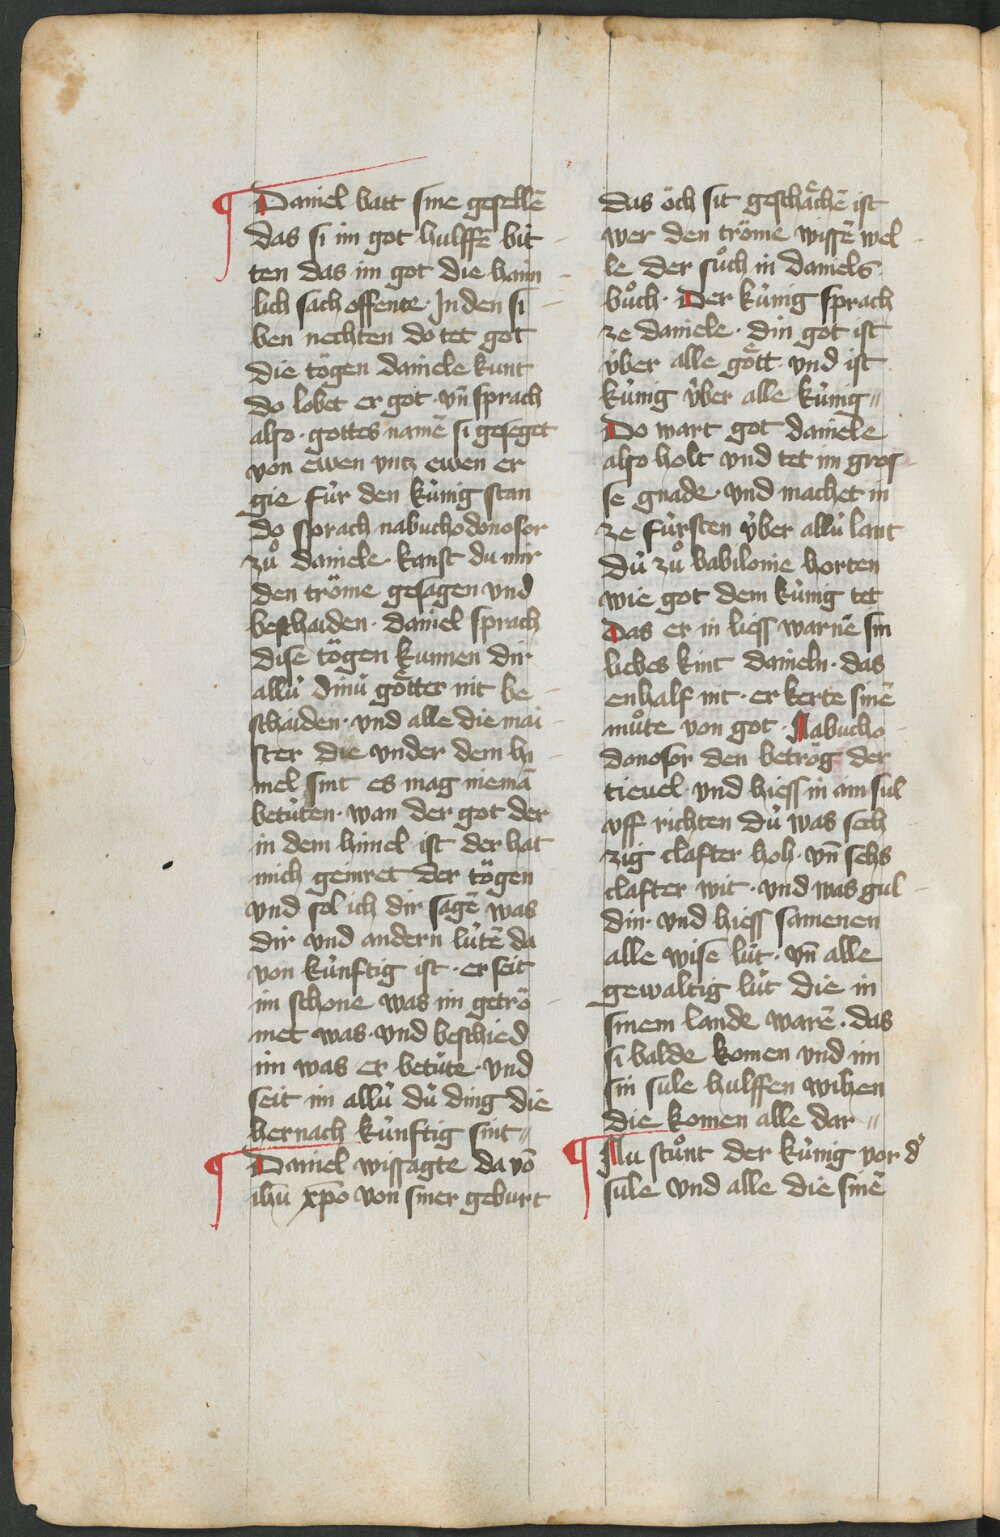 ¶ Daniel batt sine gesellē
das si im got hulffē bit
ten das im got die haim
lich sach offente · In den si
ben nechten do tet got
die tögen daniele kunt
do lobet er got · vn̄ sprach
also · gottes namē si geseget
von ewen vntz ewen er
gie fúr den kúnig stan
do sprach nabuchodonosor
zuͦ daniele · kanst du mir
den tröme gesagen vnd
beschaiden · daniel sprach
dise tögen kunnen dir
allú dinú goͤtter nit be
schaiden · vnd alle die mai
ster die vnder dem hi
mel sint es mag niemā
betúten · wan der got der
in dem himel ist der hat
mich geinret der tögen
vnd sol ich dir sagē was
dir vnd andern lútē da
von kúnftig ist · er seit
im schone was im getrö
met was · vnd beschied
im was er betúte · vnd
seit im allú dú ding die
hernach kúnftig sint //
¶ Daniel wissagte da vō
ihū xp̄o von siner geburt
das öch sit geschaͤchē ist
wer den tröme wissē wel
le der suͦch in daniels
buͦch · Der kúnig sprach
ze daniele · din got ist
v́ber alle goͤtt · vnd ist
kúnig v́ber alle kúnig //
Do wart got daniele
also holt vnd tet im gros
se gnade · vnd machet in
ze fúrsten v́ber allú lant
dú zuͦ babilonie horten
wie got dem kúnig tet
Das er in liess warnē sin
liebes kint danieln · das
enhalf nit · er kerte sinē
muͦte von got · Nabucho
donosor den betrög der
tieuel · vnd hiess in ain sul
vff richten dú was sech
zig clafter hoh · vn̄ sehs
clafter wit · vnd was gul
din · vnd hiess samenen
alle wise lút · vn̄ alle
gewaltig lút die in
sinem lande warē · das
si balde komen vnd im
sin sule hulffen wihen
die komen alle dar //
¶ Nu stuͦnt der kúnig vor d̕
sule vnd alle die sinē